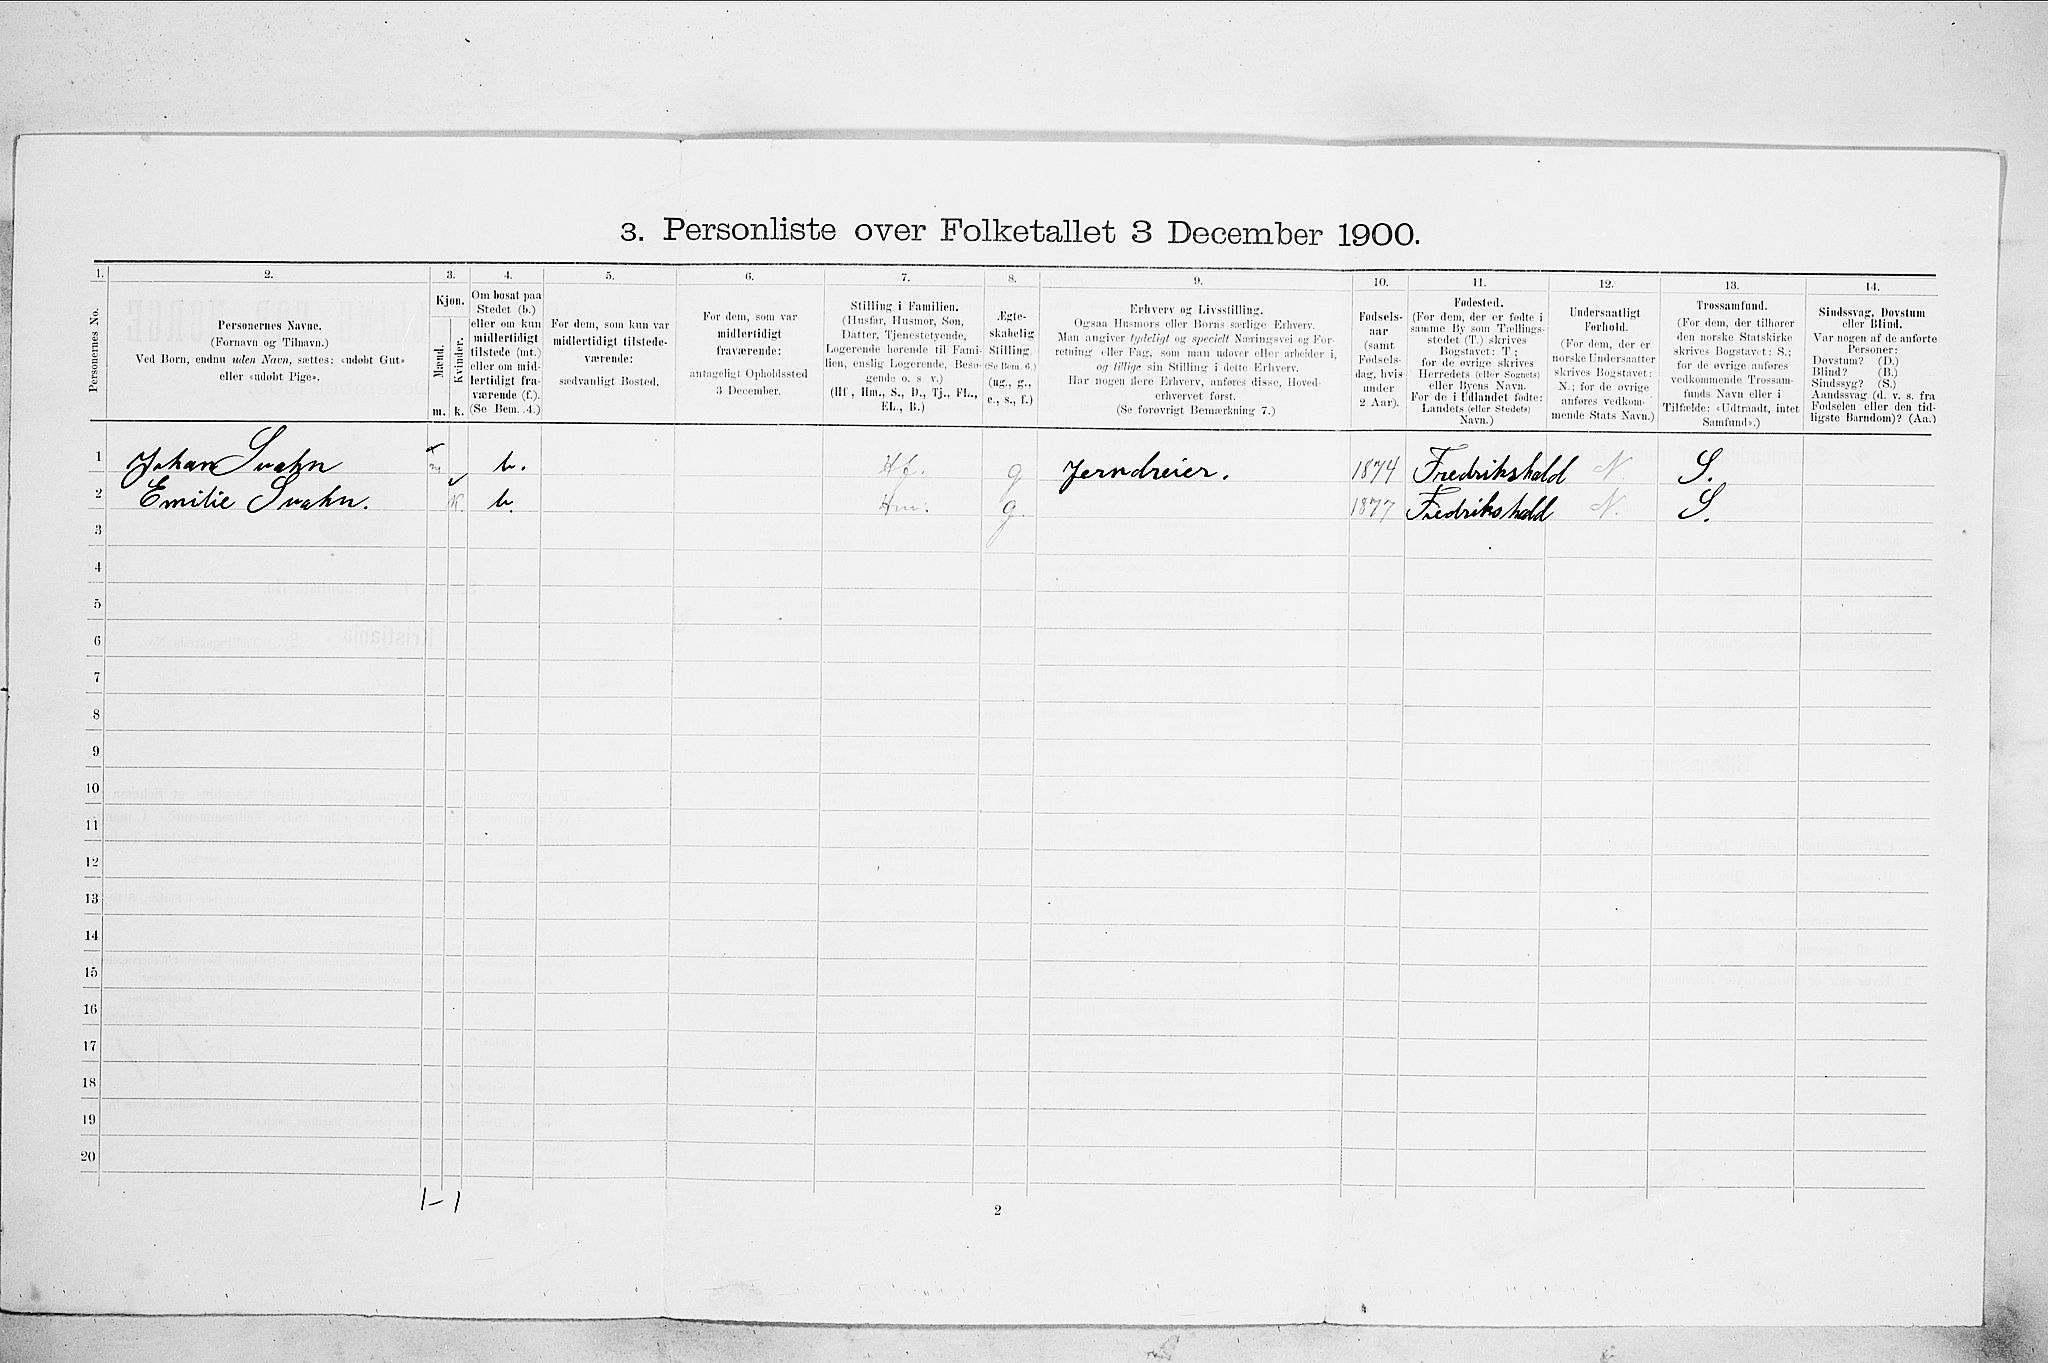 3. Personliste over Folketallet 3 December 1900.
1. 2. 3. 4. 5. 6. 7. 8. 9. 10. 11. 12. 13. 14.
Personernes No.
Personernes Navne.
(Fornavn og Tilnavn.)
Ved Børn, endnu uden Navn, sættes: «udøbt Gut»
eller «udøbt Pige».
Kjøn.
Mænd.
Kvinder.
m. k.
Om bosat paa
Stedet (b.)
eller om kun
midlertidigt
tilstede (mt.)
eller om mid-
lertidigt fra-
værende (f.).
(Se Bem. 4.)
For dem, som kun var
midlertidigt tilstede-
værende:
sædvanligt Bosted.
For dem, som var
midlertidigt
fraværende:
antageligt Opholdssted
3 December.
Stilling i Familien.
(Husfar, Husmor, Søn,
Datter, Tjenestetyende,
Logerende hørende til Fami-
lien, enslig Logerende, Besø-
gende o. s. v.)
(Hf., Hm., S., D., Tj., FL.,
EL., B.)
Ægte-
skabelig
Stilling.
(Se Bem. 6.)
(ug., g.,
e., s., f.)
Erhverv og Livsstilling.
Ogsaa Husmors eller Børns særlige Erhverv.
Man angiver tydeligt og specielt Næringsvei og For-
retning eller Fag, som man udøver eller arbeider i,
og tillige sin Stilling i dette Erhverv.
Har nogen flere Erhverv, anføres disse, Hoved-
erhvervet først.
(Se forøvrigt Bemærkning 7.)
Fødsels-
aar
(samt
Fødsels-
dag, hvis
under
2 Aar).
Fødested.
(For dem, der er fødte i
samme By som Tællings-
stedet (T.) skrives
Bogstavet: T;
for de øvrige skrives
Herredets (eller Sognets)
eller Byens Navn.
For de i Udlandet fødte:
Landets (eller Stedets)
Navn.)
Undersaatligt
Forhold.
(For dem, der er
norske Undersaatter
skrives Bogstavet:
N.; for de øvrige
anføres vedkom-
mende Stats Navn.)
Trossamfund.
(For dem, der tilhører
den norske Statskirke
skrives Bogstavet: S.;
for de øvrige anføres
vedkommende Trossam-
funds Navn eller i
Tilfælde: «Udtraadt, intet
Samfund».)
Sindssvag, Døvstum
eller Blind.
Var nogen af de anførte
Personer:
Døvstum? (D.)
Blind? (B.)
Sindssyg? (S.)
Aandssvag (d. v. s. fra
Fødselen eller den tid-
ligste Barndom)? (Aa.)
1 Johan Svahn m b. Hf. g Jerndreier. 1874 Fredrikshald N. S.
2 Emilie Svahn. k. b. Hm. g. 1877 Fredrikshald N. S.
3
4
5
6
7
8
9
10
11
12
13
14
15
16
17
18
19
20
1 – 1
2